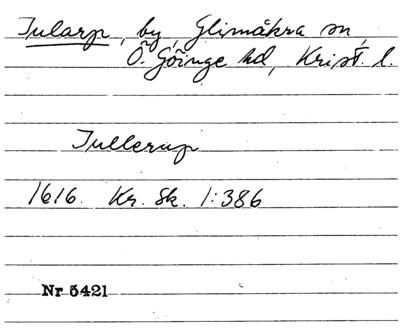 Tularp, by, Glimåkra sn,
Ö. Göinge hd, Krist. l.
Tullerup
1616. Kr. Sk. 1:386
Nr 5421